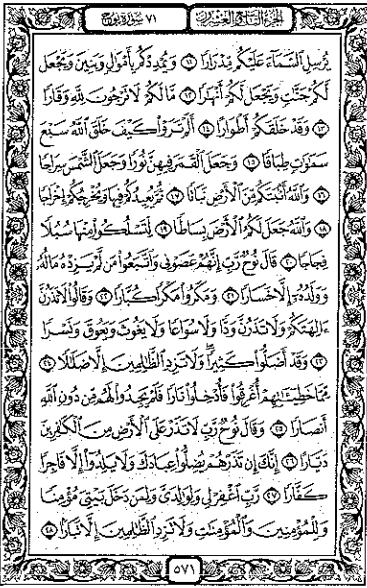 الجزء التاسع والعشرون ٧١ سورة نوح
يُرْسِلِ السَّمَآءَ عَلَيْكُم مِّدْرَارًا ۝١١ وَيُمْدِدْكُم بِأَمْوَٰلٍ وَبَنِينَ وَيَجْعَل
لَّكُمْ جَنَّٰتٍ وَيَجْعَل لَّكُمْ أَنْهَٰرًا ۝١٢ مَّا لَكُمْ لَا تَرْجُونَ لِلَّهِ وَقَارًا
۝١٣ وَقَدْ خَلَقَكُمْ أَطْوَارًا ۝١٤ أَلَمْ تَرَوْا۟ كَيْفَ خَلَقَ ٱللَّهُ سَبْعَ
سَمَٰوَٰتٍ طِبَاقًا ۝١٥ وَجَعَلَ ٱلْقَمَرَ فِيهِنَّ نُورًا وَجَعَلَ ٱلشَّمْسَ سِرَاجًا
۝١٦ وَٱللَّهُ أَنۢبَتَكُم مِّنَ ٱلْأَرْضِ نَبَاتًا ۝١٧ ثُمَّ يُعِيدُكُمْ فِيهَا وَيُخْرِجُكُمْ إِخْرَاجًا
۝١٨ وَٱللَّهُ جَعَلَ لَكُمُ ٱلْأَرْضَ بِسَاطًا ۝١٩ لِّتَسْلُكُوا۟ مِنْهَا سُبُلًا
فِجَاجًا ۝٢٠ قَالَ نُوحٌ رَّبِّ إِنَّهُمْ عَصَوْنِى وَٱتَّبَعُوا۟ مَن لَّمْ يَزِدْهُ مَالُهُۥ
وَوَلَدُهُۥٓ إِلَّا خَسَارًا ۝٢١ وَمَكَرُوا۟ مَكْرًا كُبَّارًا ۝٢٢ وَقَالُوا۟ لَا تَذَرُنَّ
ءَالِهَتَكُمْ وَلَا تَذَرُنَّ وَدًّا وَلَا سُوَاعًا وَلَا يَغُوثَ وَيَعُوقَ وَنَسْرًا
۝٢٣ وَقَدْ أَضَلُّوا۟ كَثِيرًا ۖ وَلَا تَزِدِ ٱلظَّٰلِمِينَ إِلَّا ضَلَٰلًا ۝٢٤
مِّمَّا خَطِيٓـَٰٔتِهِمْ أُغْرِقُوا۟ فَأُدْخِلُوا۟ نَارًا فَلَمْ يَجِدُوا۟ لَهُم مِّن دُونِ ٱللَّهِ
أَنصَارًا ۝٢٥ وَقَالَ نُوحٌ رَّبِّ لَا تَذَرْ عَلَى ٱلْأَرْضِ مِنَ ٱلْكَٰفِرِينَ
دَيَّارًا ۝٢٦ إِنَّكَ إِن تَذَرْهُمْ يُضِلُّوا۟ عِبَادَكَ وَلَا يَلِدُوٓا۟ إِلَّا فَاجِرًا
كَفَّارًا ۝٢٧ رَّبِّ ٱغْفِرْ لِى وَلِوَٰلِدَىَّ وَلِمَن دَخَلَ بَيْتِىَ مُؤْمِنًا
وَلِلْمُؤْمِنِينَ وَٱلْمُؤْمِنَٰتِ وَلَا تَزِدِ ٱلظَّٰلِمِينَ إِلَّا تَبَارًۢا ۝٢٨
٥٧١